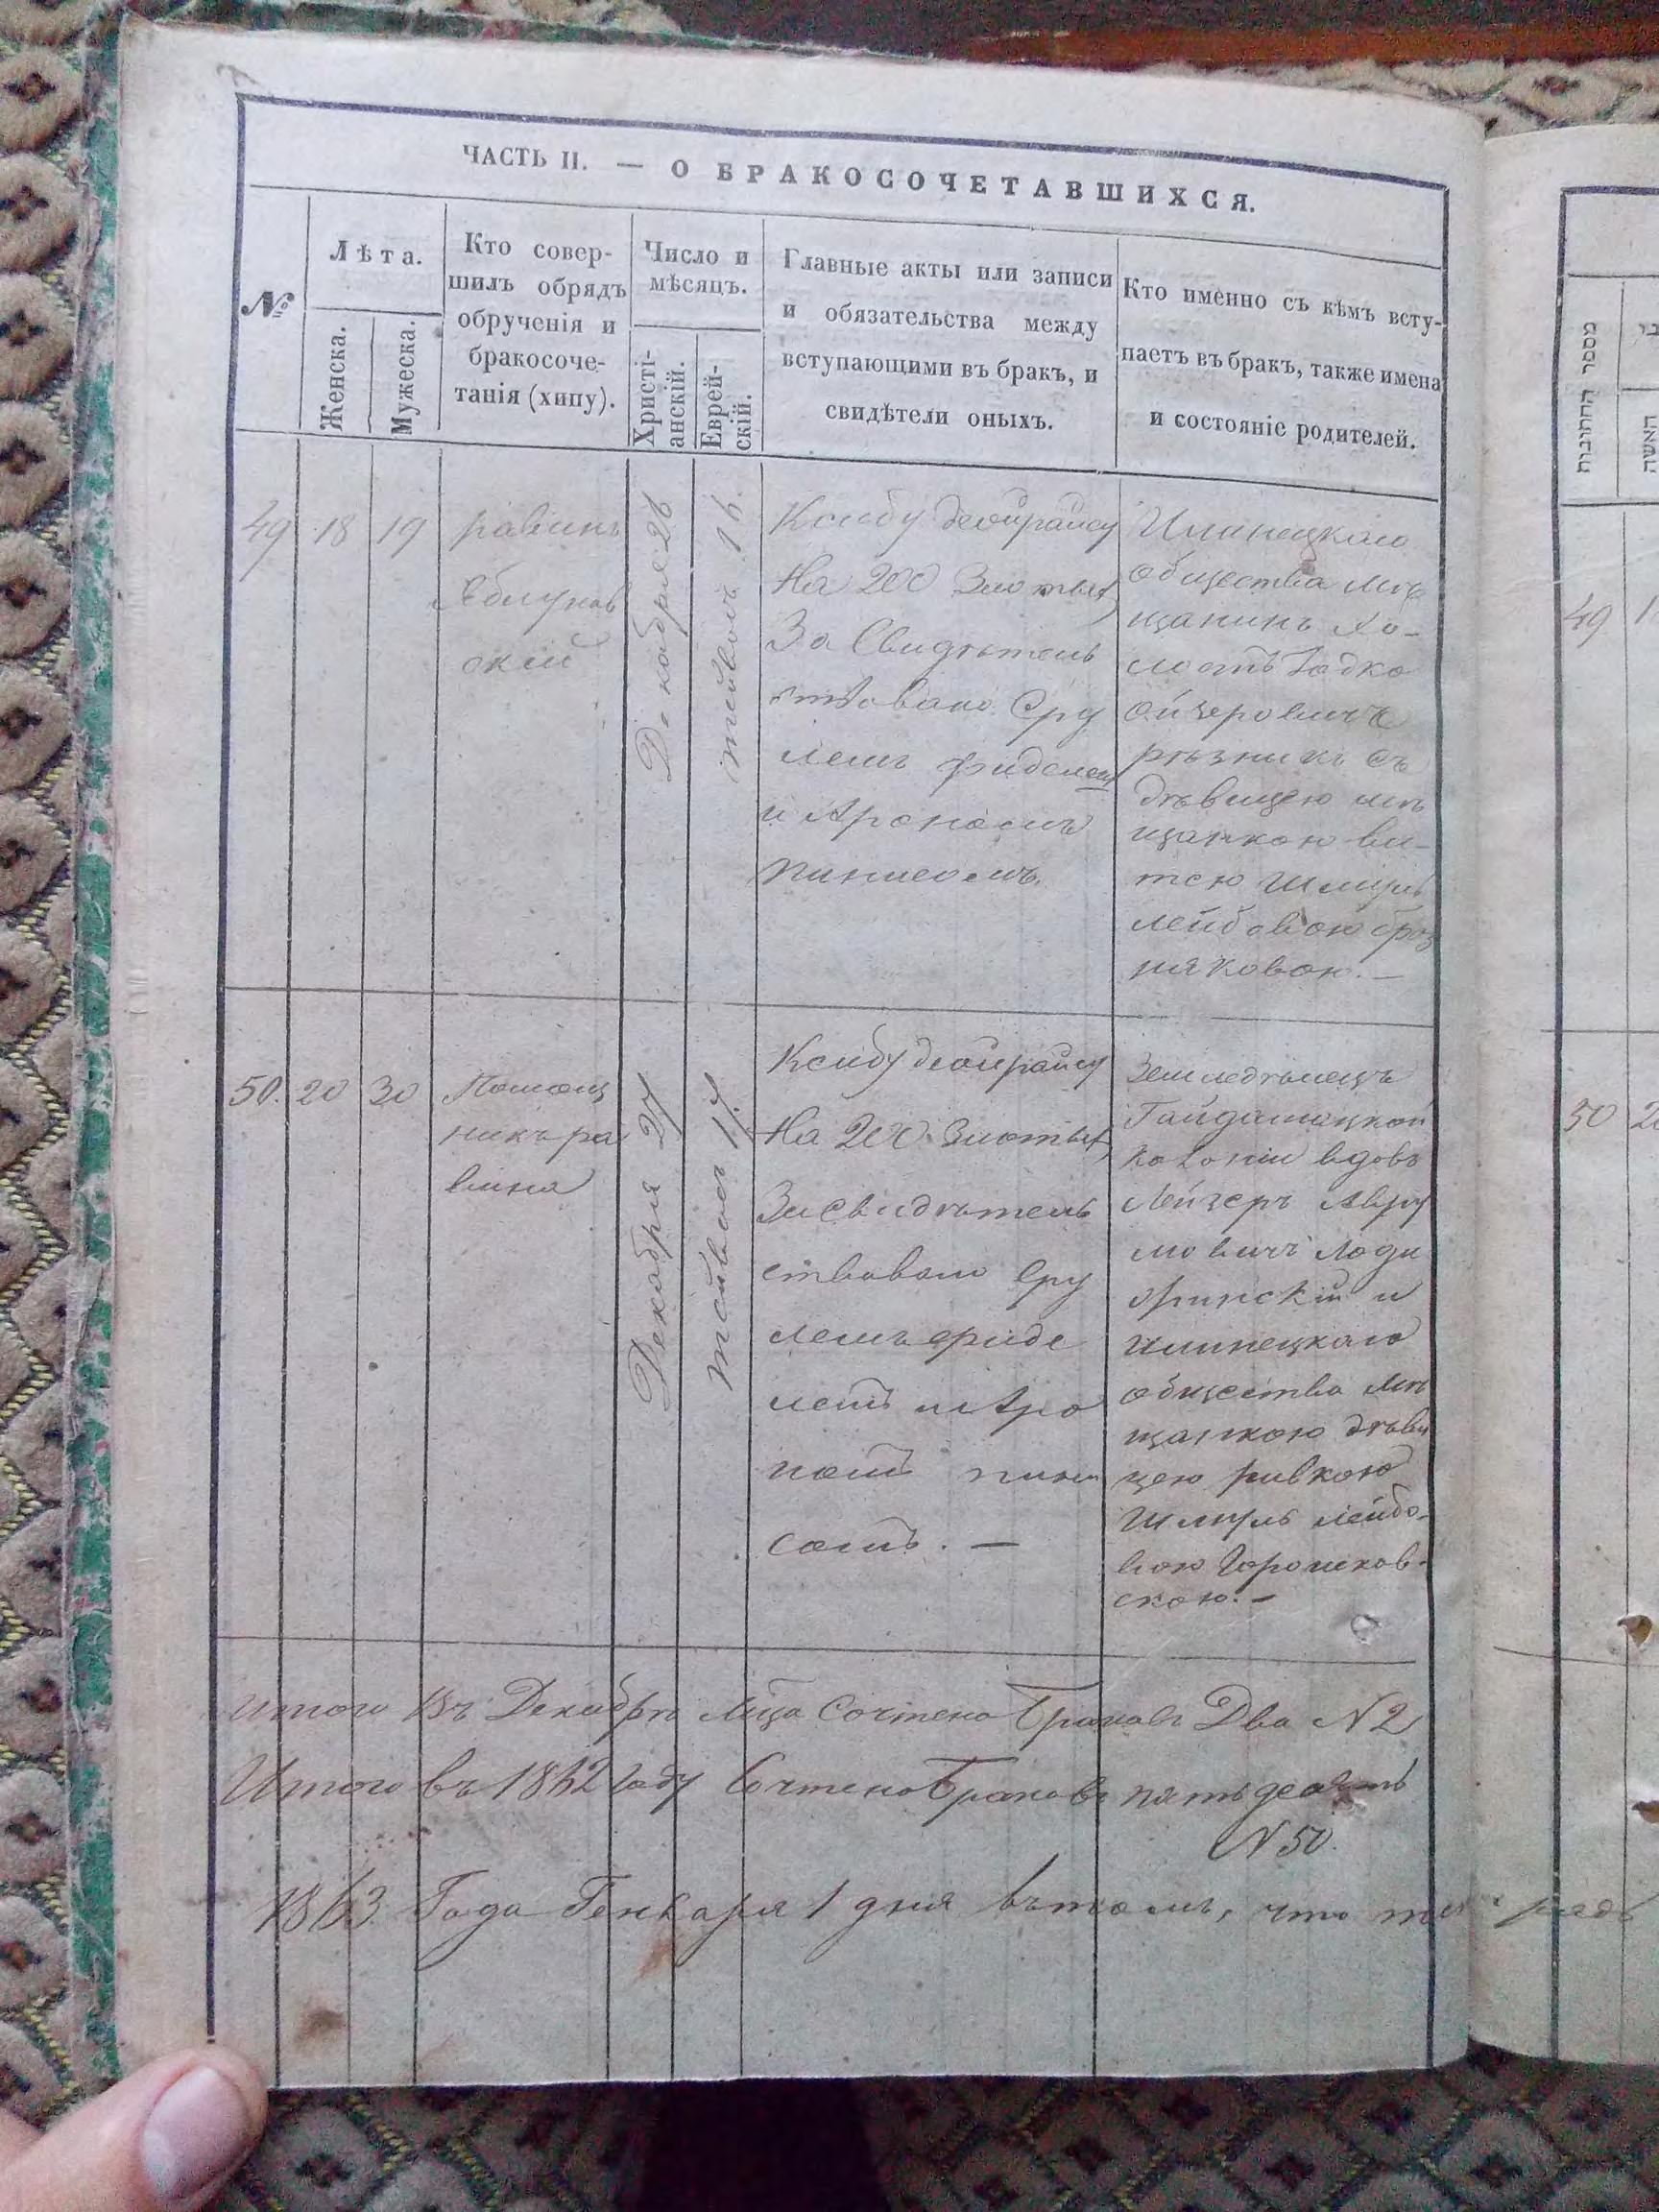 ЧАСТЬ II. — О БРАКОСОЧЕТАВШИХСЯ.
№
Лѣта.
Женска.
Мужеска.
Кто совер-
шилъ обрядъ
обрученія и
бракосоче-
танія (хипу).
Число и
мѣсяцъ.
Христі-
анскій.
Еврей-
скій.
Главные акты или записи
и обязательства между
вступающими въ бракъ, и
свидѣтели оныхъ.
Кто именно съ кѣмъ всту-
паетъ въ бракъ, также имена
и состояніе родителей.
49
18
19
равинъ
Яблунов
скій
Декабря 26
тейвесъ 16.
Ксибу деойрайсу
На 200 Злотых
За Свидѣтель
ствовано Сру
лемъ фриделем
и Арономъ
пинисомъ.
Илинецкаго
общества мѣ
щанинъ Хо-
лостъ
Ойзеровичъ
рѣзникъ съ
дѣвицею мѣ
щанкою
тею Шмуль
лейбовою броз
няковою. —
50.
20
30
Помощ
никъ ра
вина
Декабря 27
тейвесъ 17.
Ксибу деойрайсу
На 200 Злотых
Засвидѣтель
ствовано Сру
лемъ фриде
лемъ и Аро
номъ пини
сомъ. —
Земледѣлецъ
Гайдамацкой
колоніи вдовъ
Лейзеръ Авру
мовичъ
и
Илинецкаго
общества мѣ
щанкою дѣви
цею ривкою
Шмуль лейбо-
вою Горошков-
скою. —
Итого въ Декабрѣ М-ца Сочтено Браковъ Два N 2
Итого въ 1862 Году Сочтено Браковъ пятьдесятъ
N 50.
1863 Года Генваря 1 дня въ томъ, что
מספר החתונות
האשה
49
50